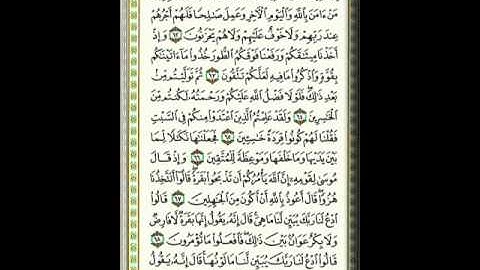 مَنْ ءَامَنَ بِٱللَّهِ وَٱلْيَوْمِ ٱلْـَٔاخِرِ وَعَمِلَ صَـٰلِحًا فَلَهُمْ أَجْرُهُمْ
عِندَ رَبِّهِمْ وَلَا خَوْفٌ عَلَيْهِمْ وَلَا هُمْ يَحْزَنُونَ ٦٢ وَإِذْ
أَخَذْنَا مِيثَـٰقَكُمْ وَرَفَعْنَا فَوْقَكُمُ ٱلطُّورَ خُذُوا۟ مَآ ءَاتَيْنَـٰكُم
بِقُوَّةٍ وَٱذْكُرُوا۟ مَا فِيهِ لَعَلَّكُمْ تَتَّقُونَ ٦٣ ثُمَّ تَوَلَّيْتُم مِّنۢ
بَعْدِ ذَٰلِكَ ۖ فَلَوْلَا فَضْلُ ٱللَّهِ عَلَيْكُمْ وَرَحْمَتُهُۥ لَكُنتُم مِّنَ
ٱلْخَـٰسِرِينَ ٦٤ وَلَقَدْ عَلِمْتُمُ ٱلَّذِينَ ٱعْتَدَوْا۟ مِنكُمْ فِى ٱلسَّبْتِ
فَقُلْنَا لَهُمْ كُونُوا۟ قِرَدَةً خَـٰسِـِٔينَ ٦٥ فَجَعَلْنَـٰهَا نَكَـٰلًا لِّمَا
بَيْنَ يَدَيْهَا وَمَا خَلْفَهَا وَمَوْعِظَةً لِّلْمُتَّقِينَ ٦٦ وَإِذْ قَالَ
مُوسَىٰ لِقَوْمِهِۦٓ إِنَّ ٱللَّهَ يَأْمُرُكُمْ أَن تَذْبَحُوا۟ بَقَرَةً ۖ قَالُوٓا۟ أَتَتَّخِذُنَا
هُزُوًا ۖ قَالَ أَعُوذُ بِٱللَّهِ أَنْ أَكُونَ مِنَ ٱلْجَـٰهِلِينَ ٦٧ قَالُوا۟
ٱدْعُ لَنَا رَبَّكَ يُبَيِّن لَّنَا مَا هِىَ ۚ قَالَ إِنَّهُۥ يَقُولُ إِنَّهَا بَقَرَةٌ لَّا فَارِضٌ
وَلَا بِكْرٌ عَوَانٌۢ بَيْنَ ذَٰلِكَ ۖ فَٱفْعَلُوا۟ مَا تُؤْمَرُونَ ٦٨
قَالُوا۟ ٱدْعُ لَنَا رَبَّكَ يُبَيِّن لَّنَا مَا لَوْنُهَا ۚ قَالَ إِنَّهُۥ يَقُولُ